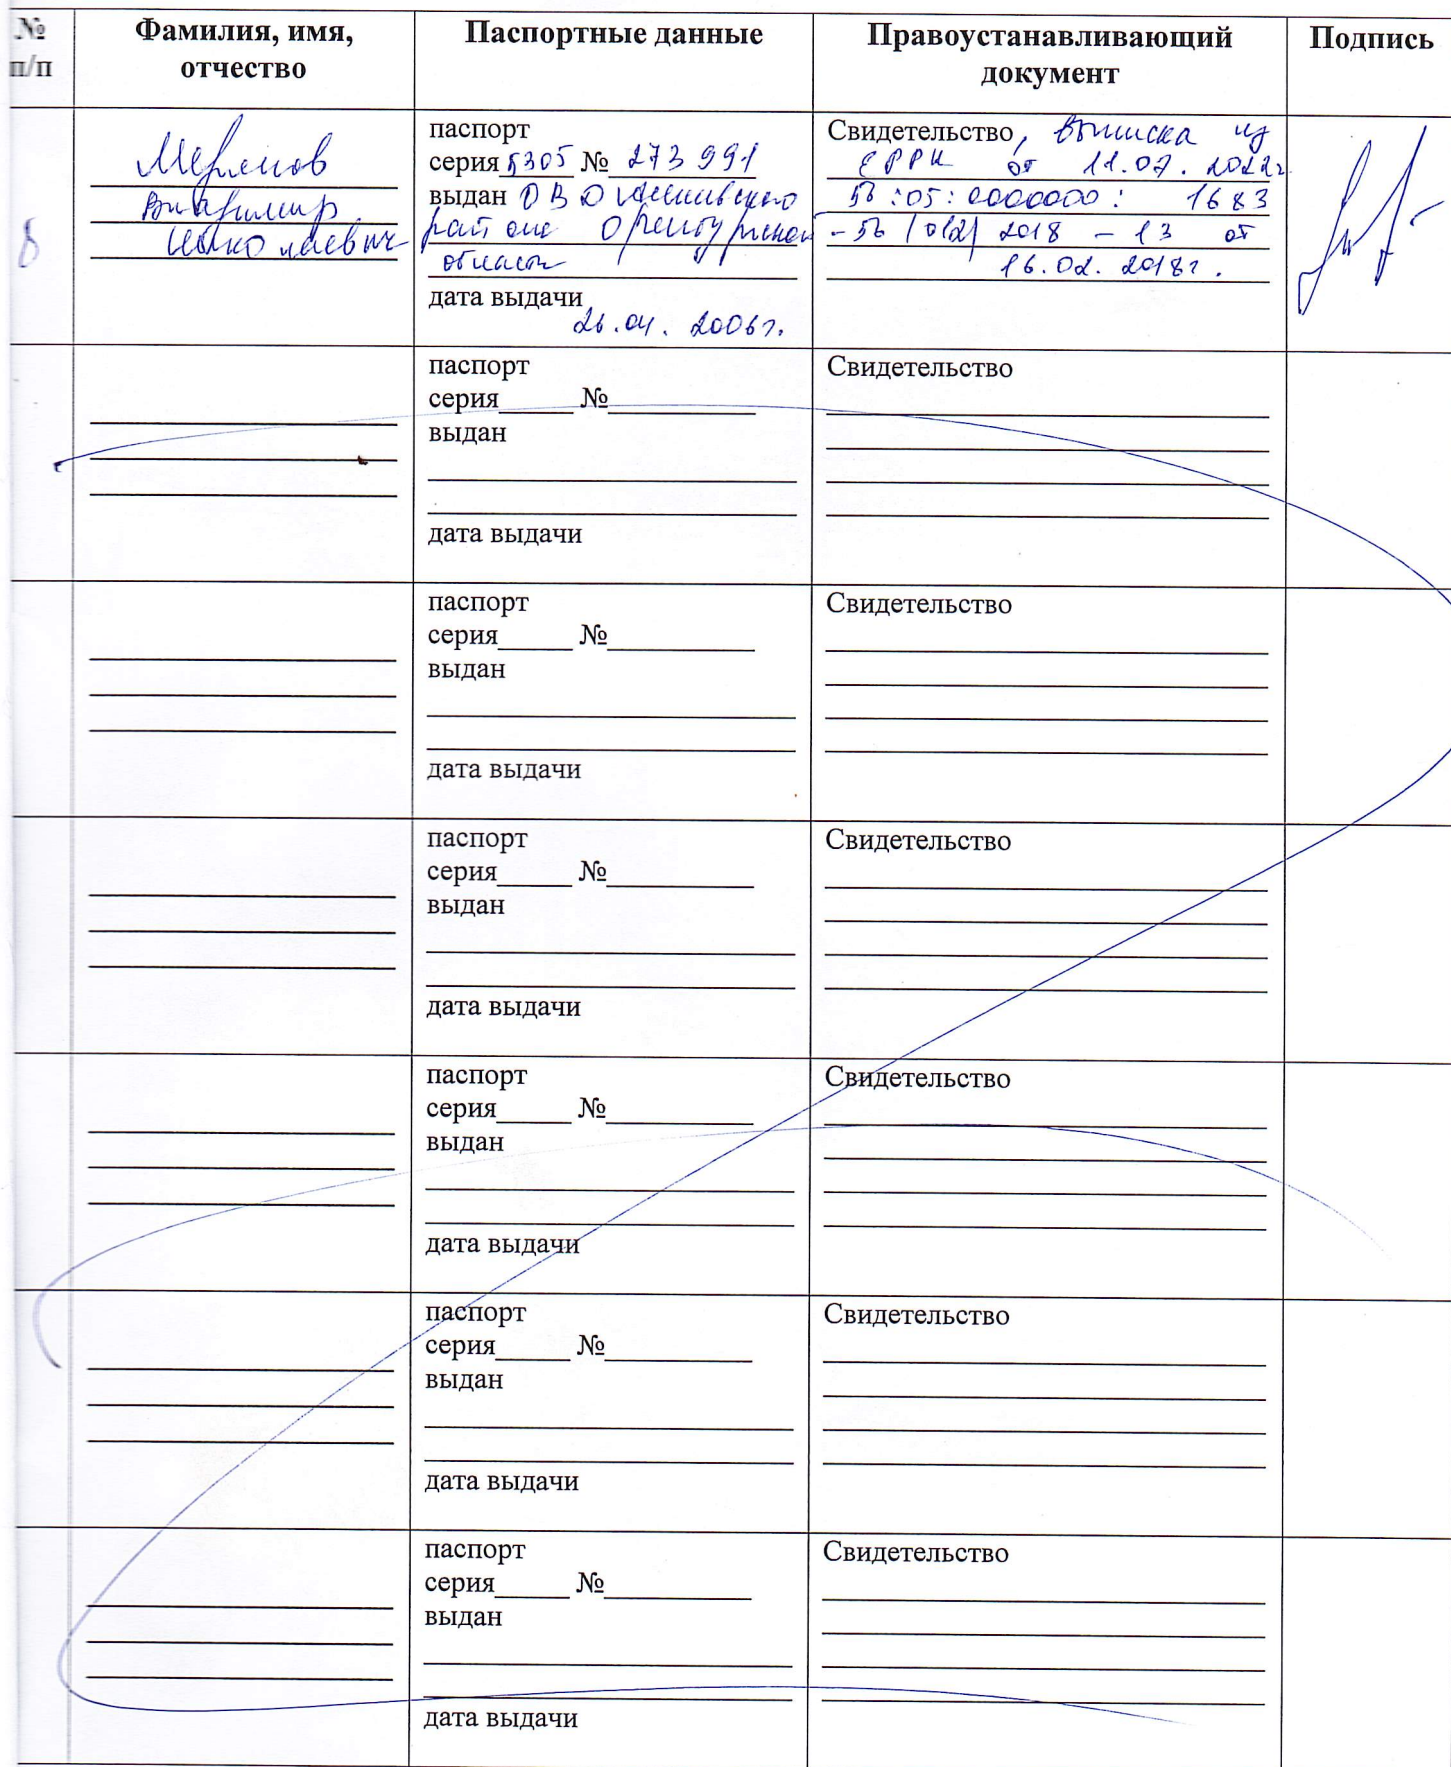 № п/п
Фамилия, имя, отчество
Паспортные данные
Правоустанавливающий документ
Подпись
8
Владимир
Николаевич
паспорт
серия 5305 № 273 991
выдан ОВД
района Оренбургской
области
дата выдачи
26.04.2006г.
Свидетельство, выписка из
ЕГРН от 11.07.2022г.
56:05:0000000: 1683
-56/012/2018-13 от
16.02.2018г.
паспорт
серия №
выдан
дата выдачи
Свидетельство
паспорт
серия №
выдан
дата выдачи
Свидетельство
паспорт
серия №
выдан
дата выдачи
Свидетельство
паспорт
серия №
выдан
дата выдачи
Свидетельство
паспорт
серия №
выдан
дата выдачи
Свидетельство
паспорт
серия №
выдан
дата выдачи
Свидетельство